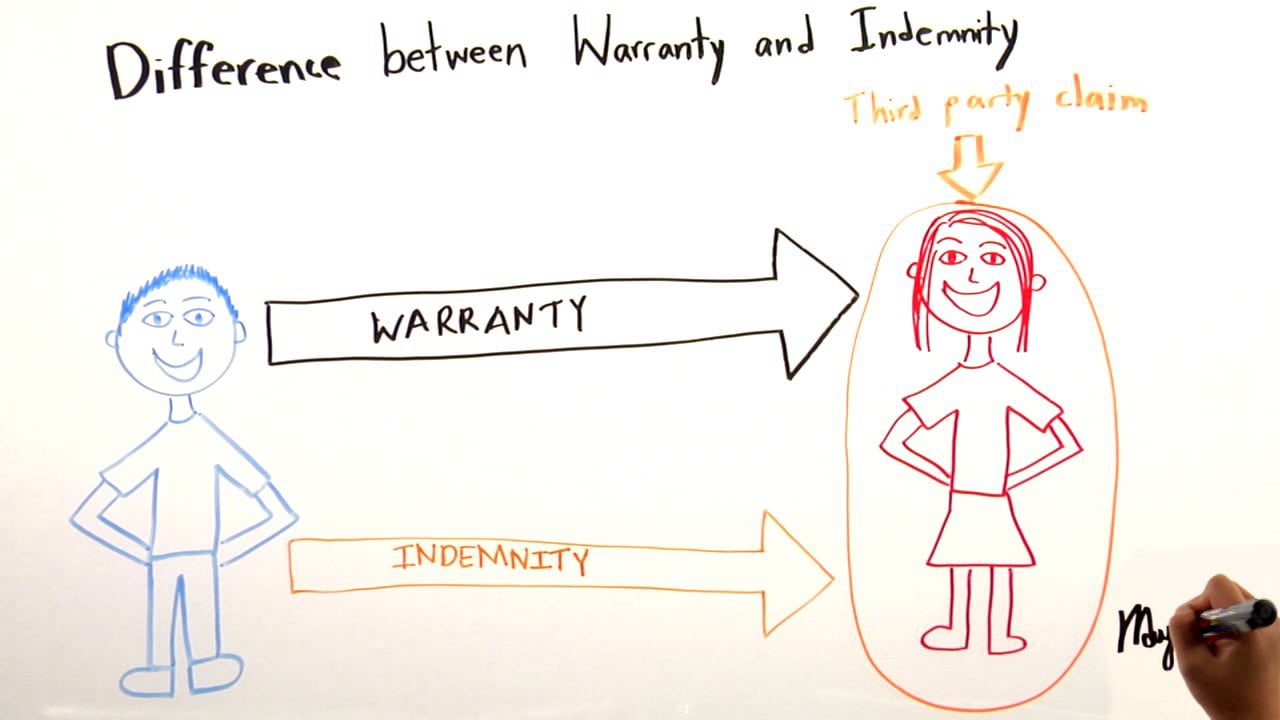 Difference between Warranty and Indemnity
Third party claim
WARRANTY
INDEMNITY
May